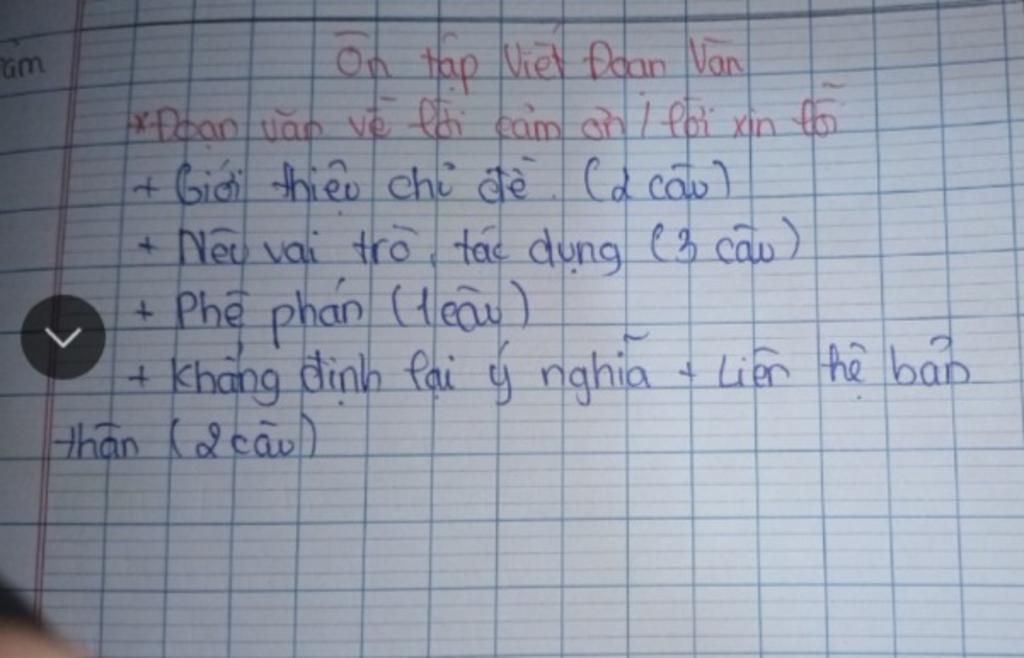 ảm
Ôn tập Viết Đoạn Văn
*Đoạn văn về lời cảm ơn / lời xin lỗi
+ Giới thiệu chỉ đề. (2 câu)
+ Nêu vai trò, tác dụng (3 câu)
+ Phê phán (1 câu)
+ Khẳng định lại ý nghĩa + Liên hệ bản
thân (2 câu)